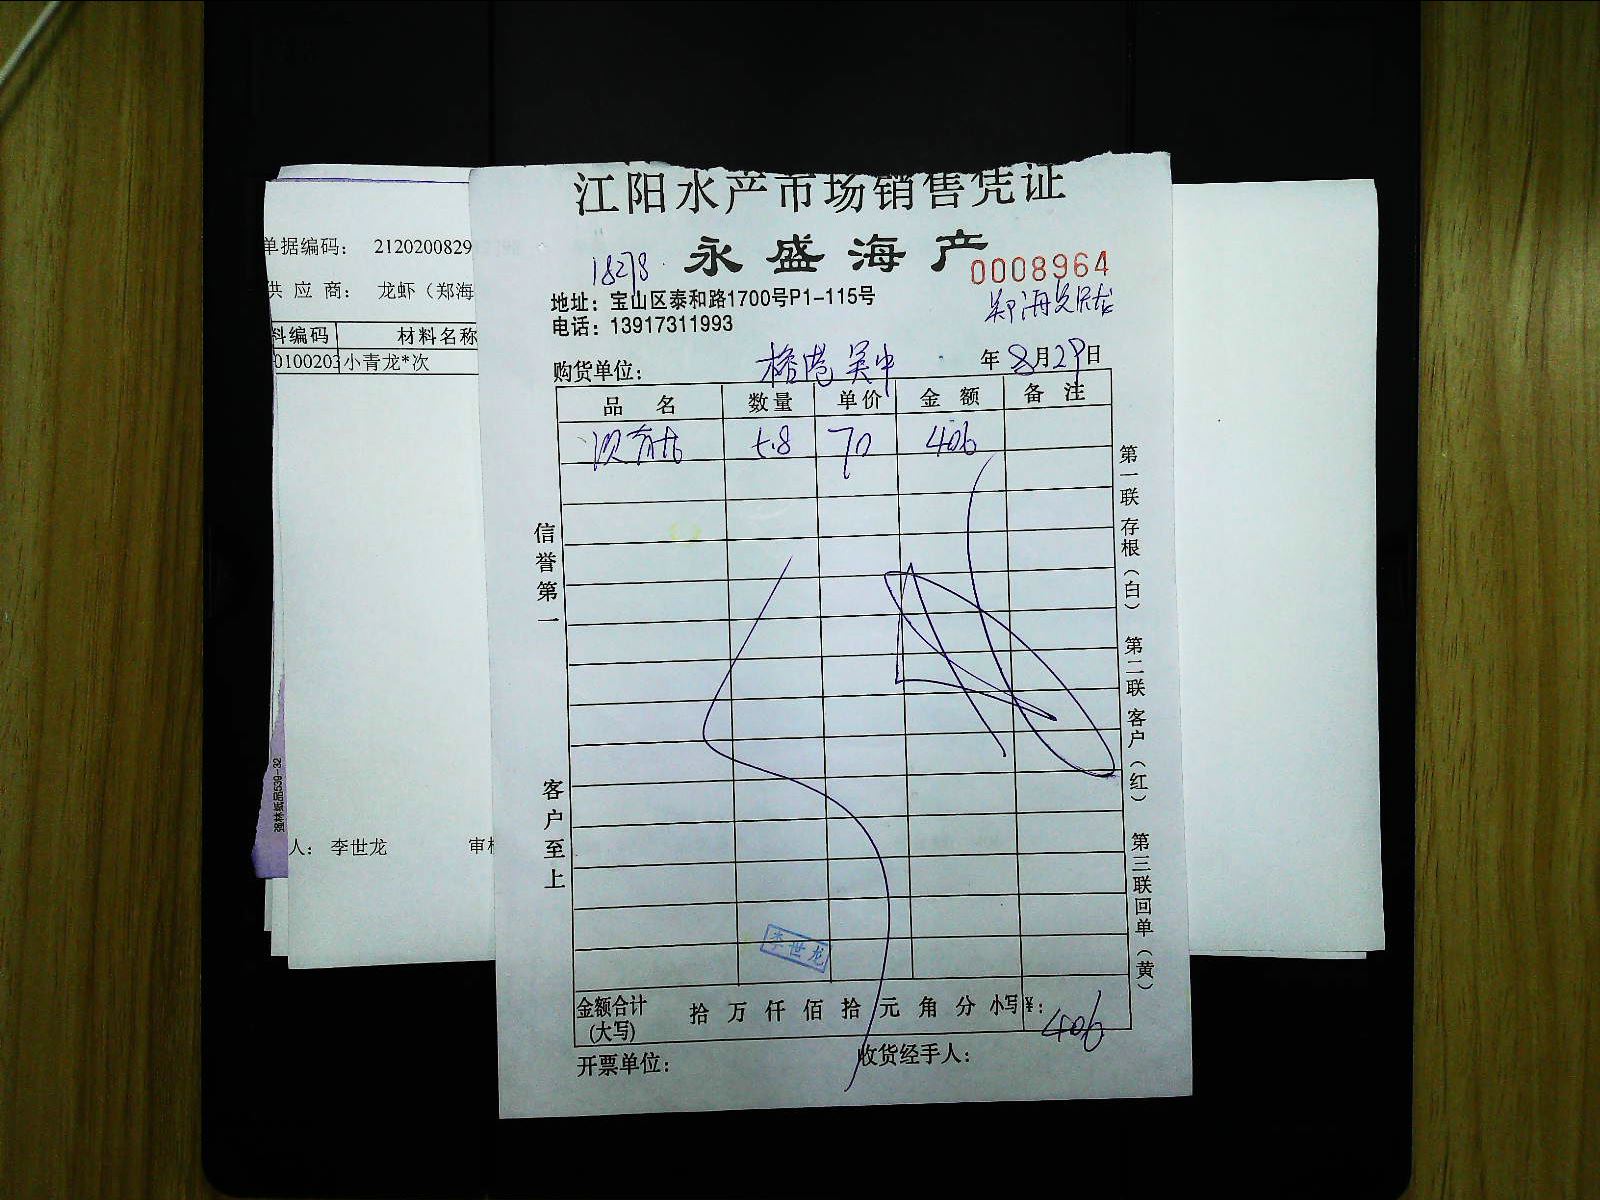 江阳水产市场销售凭证
永盛海产
18278
0008964
地址：宝山区泰和路1700号P1-115号
电话：13917311993
购货单位： 吴中 年8月29日
品名 数量 单价 金额 备注
次青龙 5.8 70 406
信誉第一
客户至上
第一联存根（白）
第二联客户（红）
第三联回单（黄）
李世龙
金额合计 拾万仟佰拾元角分 小写¥：406
(大写)
开票单位： 收货经手人：
单据编码： 2120200829
供应商： 龙虾（郑海
料编码 材料名称
0100203 小青龙*次
人： 李世龙 审